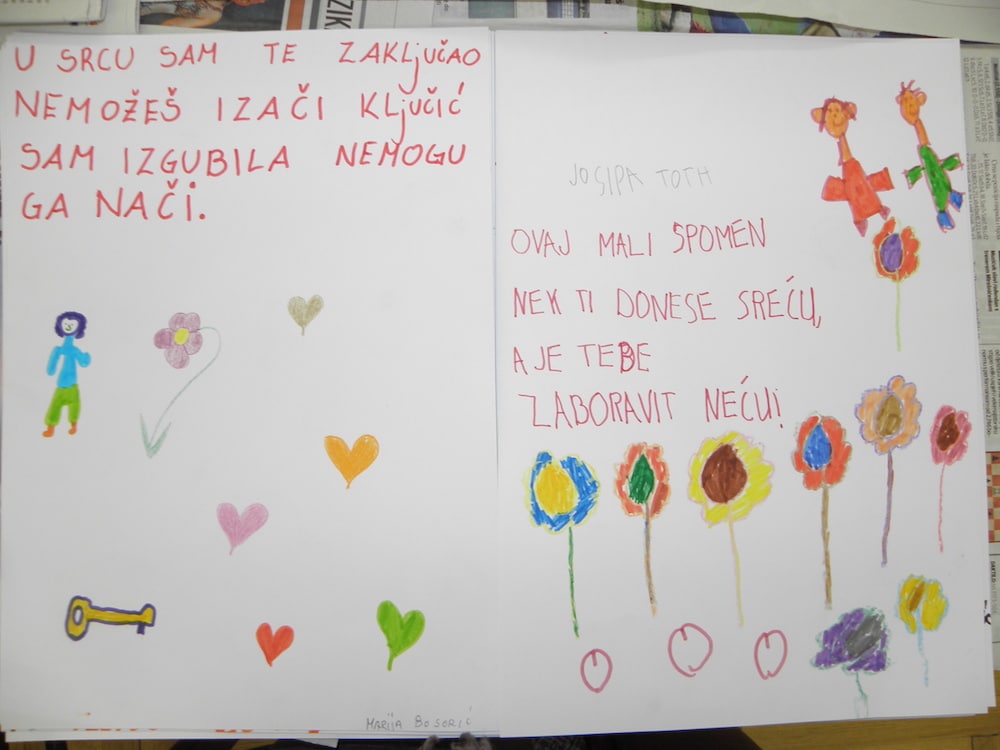 U SRCU SAM TE ZAKLjUČAO
NEMOŽEŠ IZAČI KLjUČIĆ
SAM IZGUBILA NEMOGU
GA NAČI.
MARIJA BOSORIĆ
JOSIPA TOTH
OVAJ MALI SPOMEN
NEK TI DONESE SREĆU,
A JE TEBE
ZABORAVIT NEĆU!